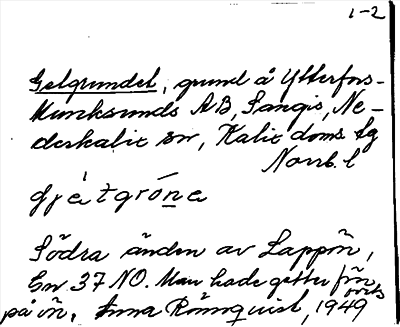 1-2
Getgrundet, grund å Ytterfors-
Munksunds AB, Sangis, Ne-
derkalix sn, Kalix doms. lg
Norrb. l
Södra änden av Lappön,
Gm. 37 NO. Man hade getter förr
på ön. Anna Rönnquist, 1949